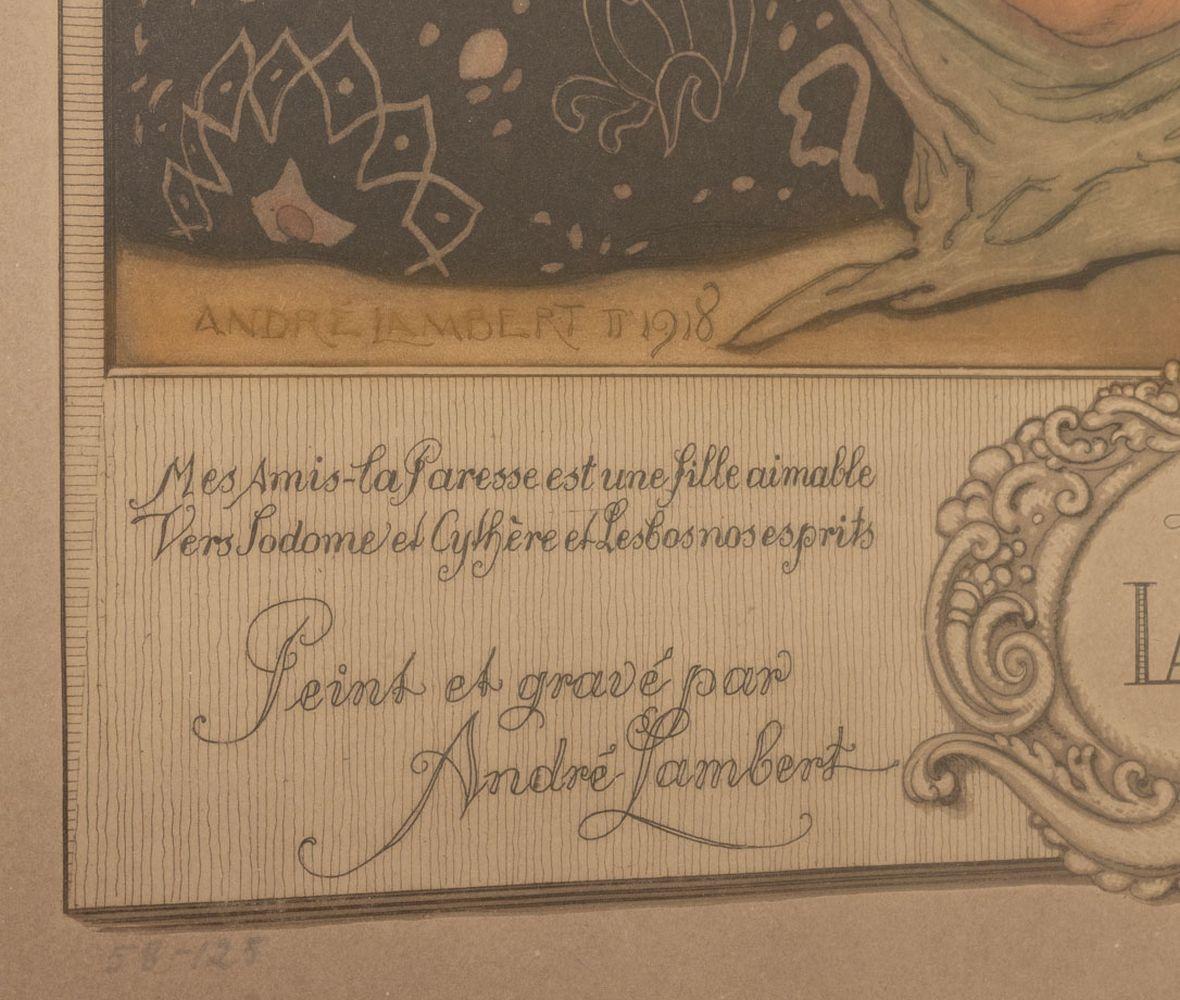 ANDRÉ LAMBERT II 1918
Mes Amis-la Paresse est une fille aimable
Vers Sodome et Cythère et Lesbos nos esprits
Peint et gravé par
André Lambert
LA
58-125